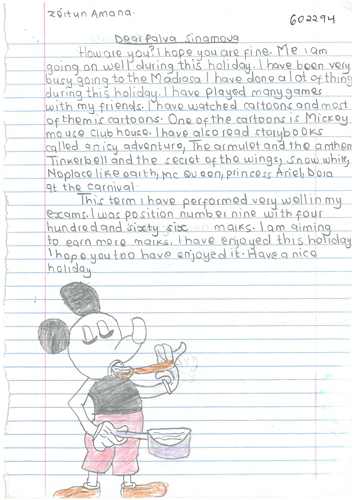 Zeitun Amana.
602294
Dear Palva Sinamova
How are you? I hope you are fine. Me i am
going on well during this holiday. I have been very
busy going to the Madrasa. I have done a lot of thing
during this holiday. I have played many games
with my friends. I have watched cartoons and most
of them is cartoons. One of the cartoons is Mickey
mouse Club house. I have also read storybooks
called an icy adventure, The armulet and the anthem
Tinkerbell and the secret of the wings, snow white,
No place like earth, mc Queen, princess Ariel, Dora
at the carnival.
This term i have performed very well in my
exams. I was position number nine with four
hundred and sixty six marks. I am aiming
to earn more marks. I have enjoyed this holiday
I hope you too have enjoyed it. Have a nice
holiday